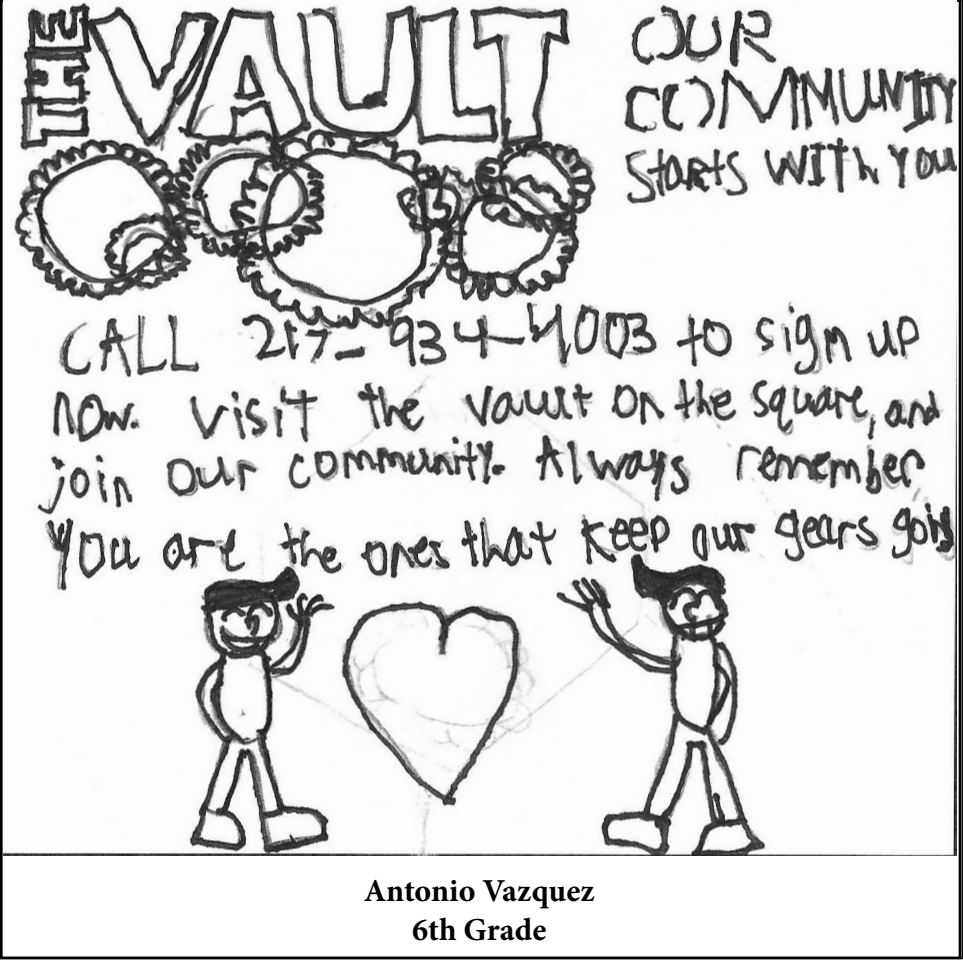 THE VAULT
OUR
COMMUNITY
Starts WITh YOU
CALL 217-934-4003 to sign up
now. visit the vault on the square, and
join our community. Always remember
You are the ones that keep our gears going
Antonio Vazquez
6th Grade